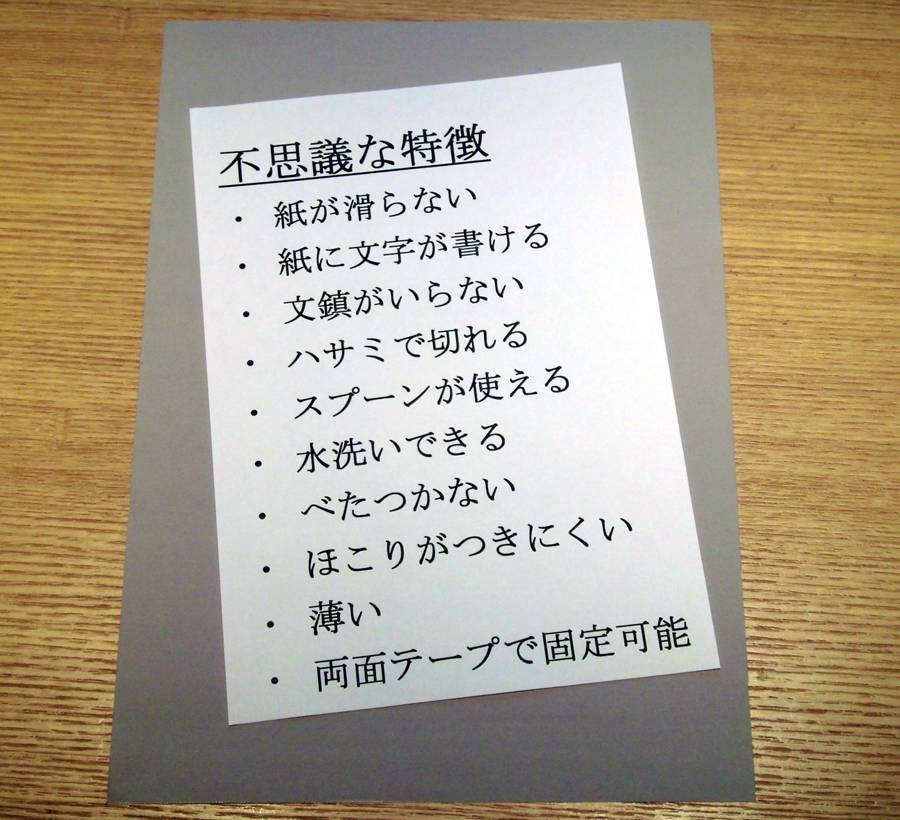 不思議な特徴
・ 紙が滑らない
・ 紙に文字が書ける
・ 文鎮がいらない
・ ハサミで切れる
・ スプーンが使える
・ 水洗いできる
・ べたつかない
・ ほこりがつきにくい
・ 薄い
・ 両面テープで固定可能